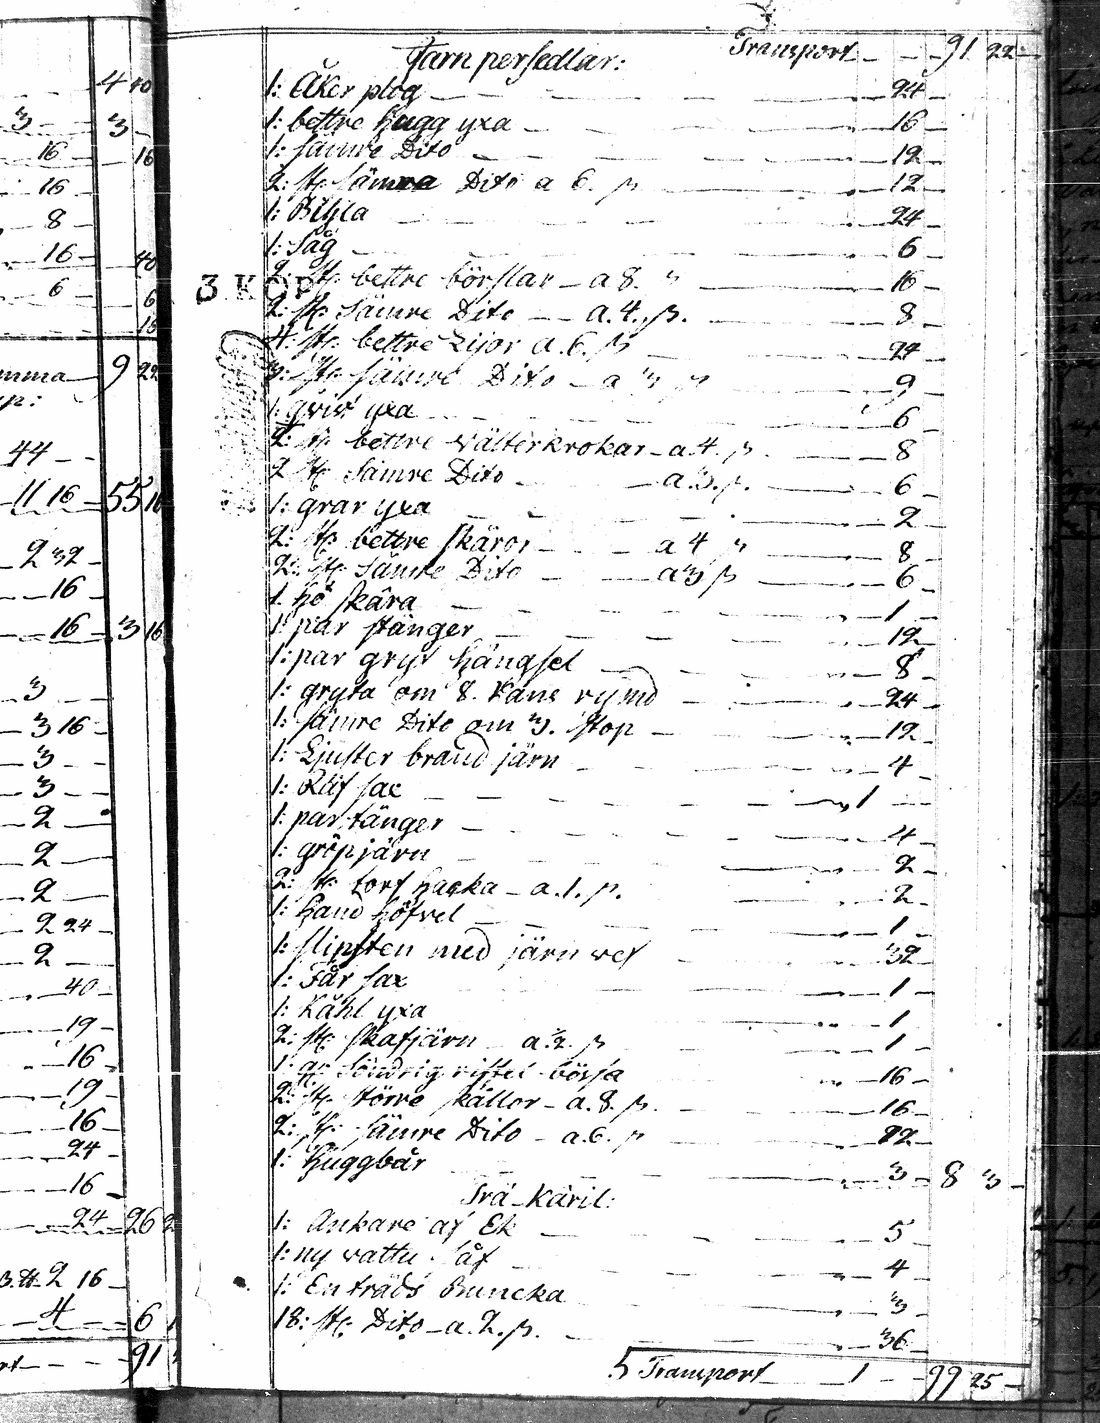 4 40
3 3
16 16
16
8
16 40
6 6
16
9 22
44
11 16 55 16
2 32
16
16 3 16
3
3 16
3
3
2
2
2
2 24
2
40
19
16
19
16
24
16
24 26
2 16
4 6
91
Transport 91 22
Järn persedlar:
1: Åker plog 24
1: bettre hugg yxa 16
1: sämre Dito 12
2: st: sämra Dito a 6. β 12
1: Bihla 24
1: Såg 6
3 KOP
2: st: bettre börslar a 8. " 16
2: st: Sämre Dito a. 4. β. 8
4: st: bettre Lijor a. 6. β 24
3: st: sämre Dito a 3 β 9
1: yxa 6
2: st: bettre välterkrokar a 4. β 8
2 st: Sämre Dito a. 3. β. 6
1: grar yxa 2
2: st: bettre skäror a 4 " 8
2: st: Sämre Dito a 3 β 6
1. hö skära 1
1: par stänger 12
1: par gryt hängsel 8
1: gryta om 8. kans rymd 24
1: sämre Dito om 3. stop 12
1: Ljuster brand järn 4
1: Räf sax 1
1: par tänger 4
1: gröpjärn 2
2: st: torf hacka a. 1. β. 2
1: hand höfvel 1
1: slipsten med järn vef 32
1: Får sax 1
1: Kåhl yxa 1
2: st: skafjärn a ½. β 1
1: gl: Söndrig riffel bössa 16
2: st: större skållor a. 8. β. 16
2: st: Sämre Dito a. 6. β 12
1: huggbår 3 8 3
Trä Käril:
1: Ankare af Ek 5
1: ny vattu Såf 4
1: En träds Buncka 3
18: st: Dito a. 2. β. 36
5 Transport 1 99 25